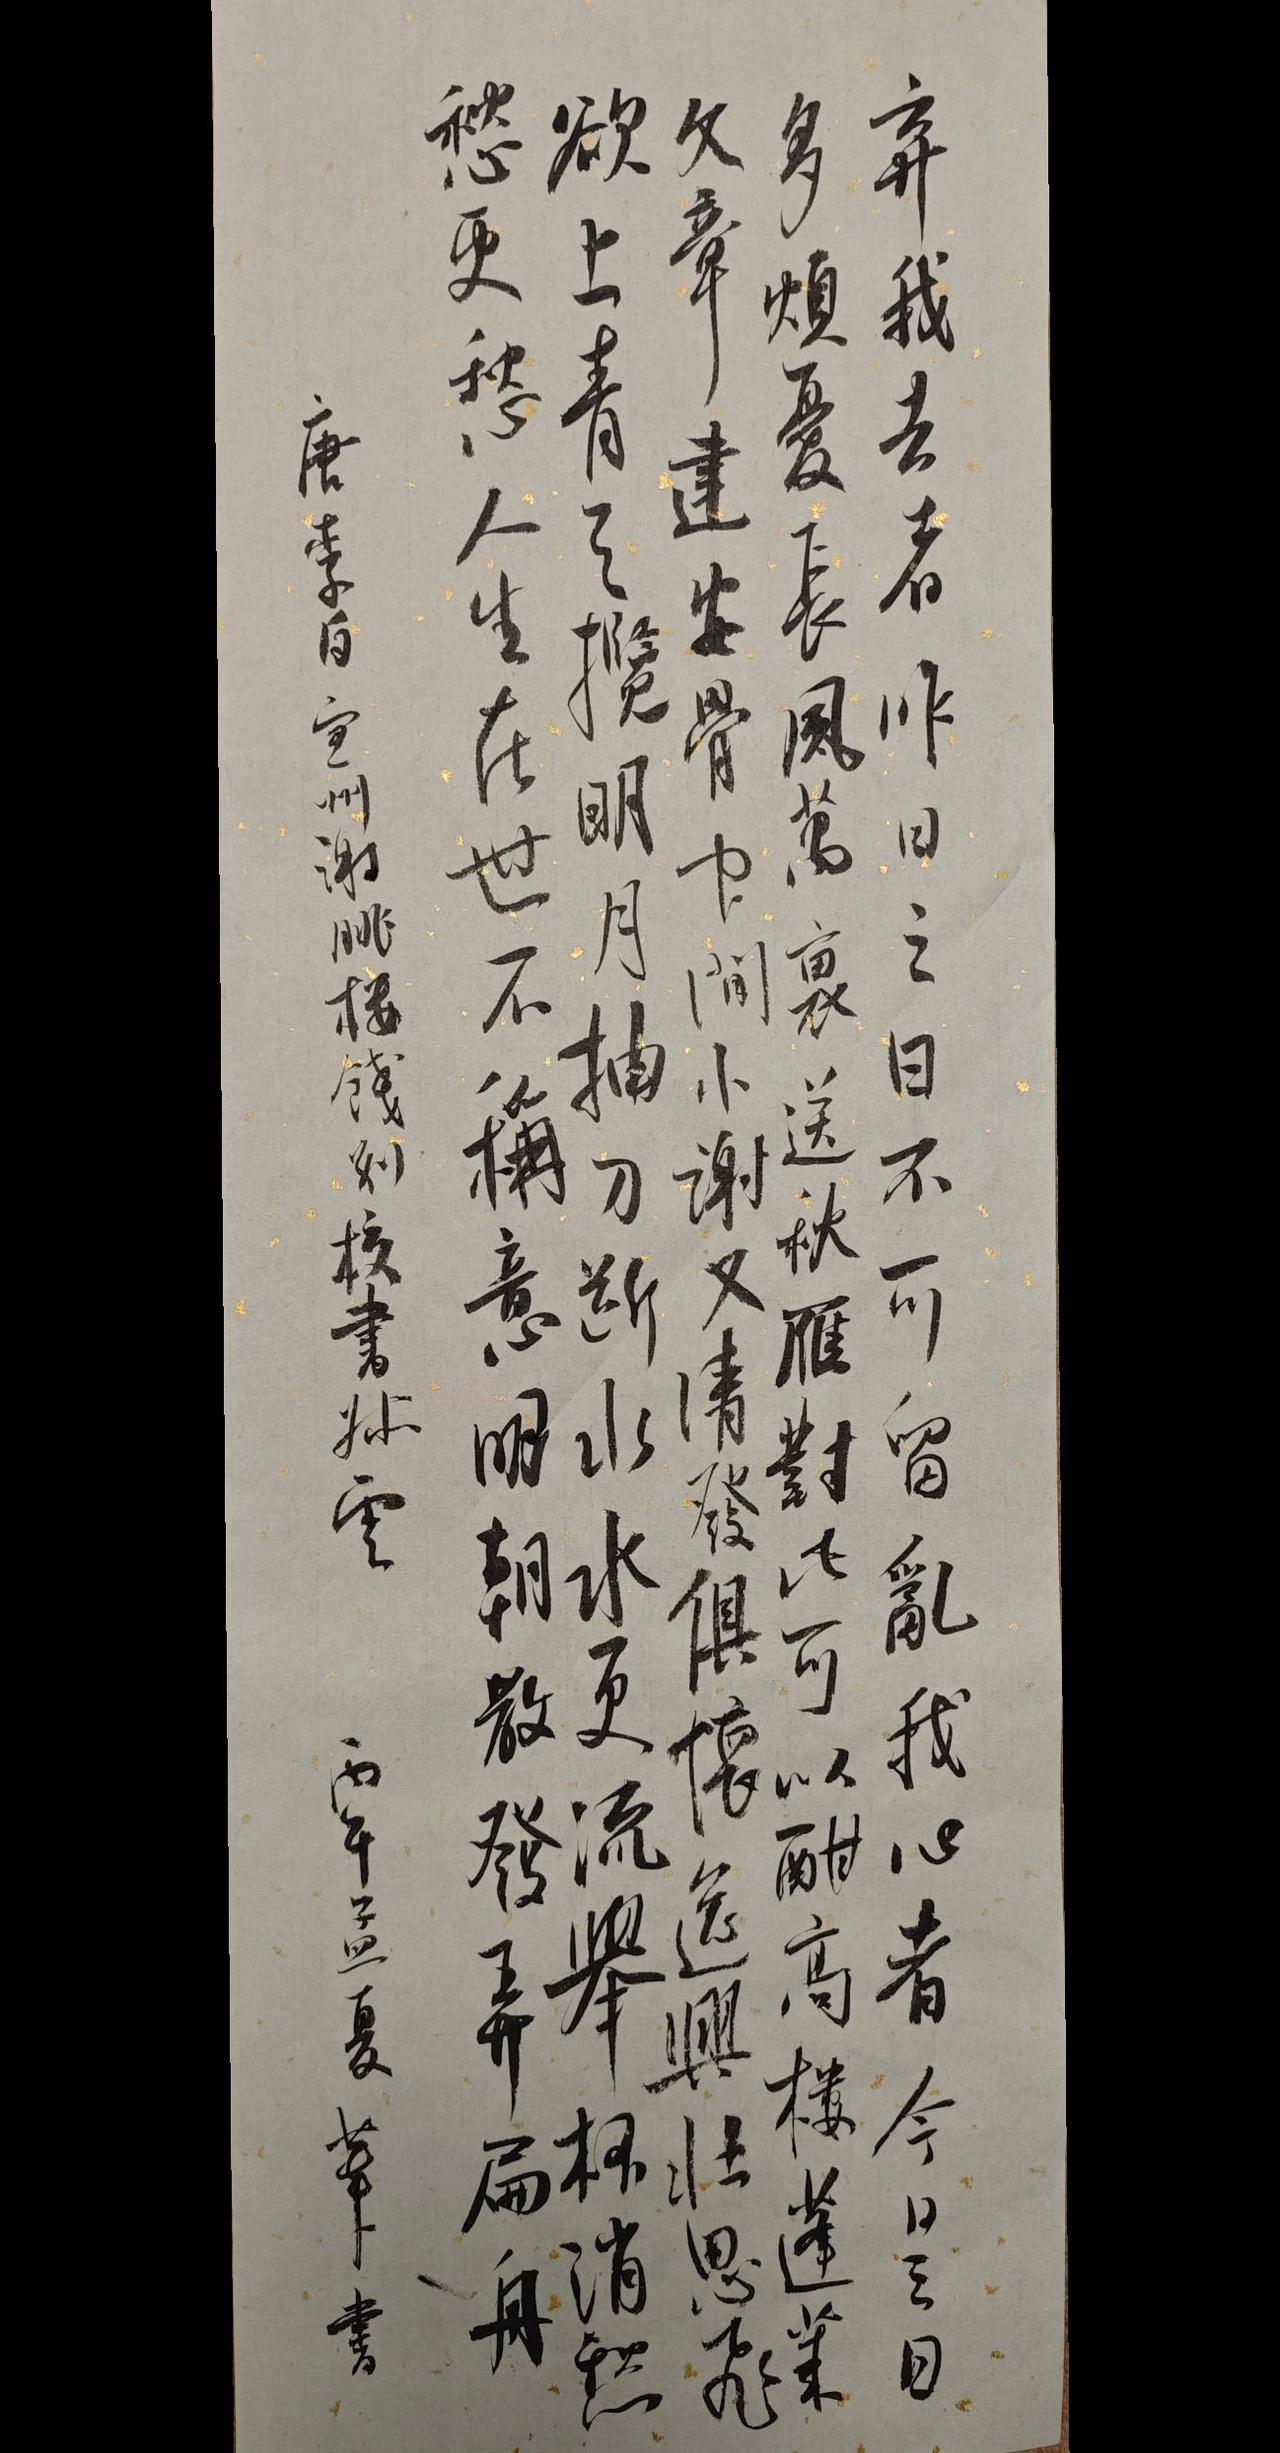 弃我去者昨日之日不可留亂我心者今日之日
多煩憂長風萬裏送秋雁對此可以酣高楼蓬萊
文章建安骨中間小謝又清發俱懷逸興壯思飛
欲上青天攬明月抽刀斷水水更流舉杯消愁
愁更愁人生在世不稱意明朝散發弄扁舟
唐李白宣州謝朓楼餞别校書叔雲 丙午孟夏 華書